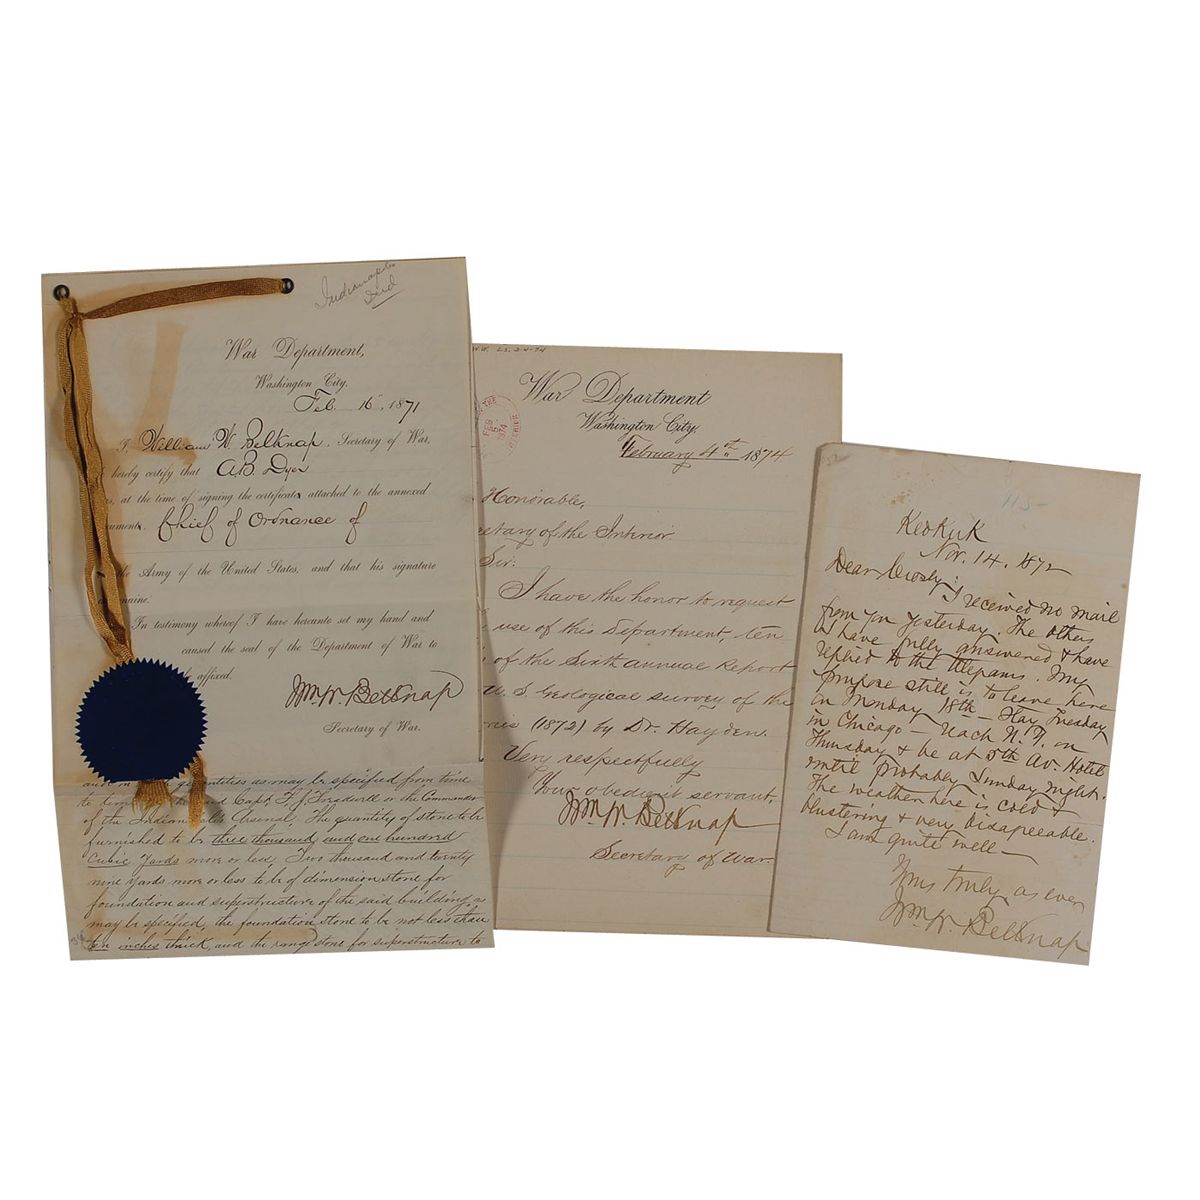 Indianapolis
Died
War Department,
Washington City.
Feb. 16, 1871
I, William W. Belknap, Secretary of War,
hereby certify that A.B. Dyer
at the time of signing the certificates attached to the annexed
Chief of Ordnance of
the Army of the United States, and that his signature
In testimony whereof I have hereunto set my hand and
caused the seal of the Department of War to
affixed.
Wm. W. Belknap
Secretary of War.
quantities as may be specified from time
to Capt. or the Commander
of the Arsenal. The quantity of stone to be
furnished to be three thousand and one hundred
Cubic Yards more or less. Two thousand and twenty
nine yards more or less to be of dimension stone for
foundation and superstructure of the said building, as
may be specified, the foundation stone to be not less than
ten inches thick, and the range stone for superstructure to
LS. 2-4-74
War Department
Washington City,
February 4th, 1874
FEB
5
1874
Honorable,
of the Interior.
Sir:
I have the honor to request
use of this Department, ten
of the Sixth annual Report
U. S. Geological survey of the
(1872) by Dr. Hayden.
Very respectfully
Your obedient servant,
Wm. W. Belknap
Secretary of War.
115-
Keokuk
Nov. 14. 1872
Dear Crosby: I received no mail
from you yesterday. The others
I have fully answered & have
replied to the telegrams. My
purpose still is to leave here
on Monday 18th - Stay Tuesday
in Chicago - reach N.Y. on
Thursday & be at 5th Av. Hotel
until probably Sunday night.
The weather here is cold &
blustering & very disagreeable.
I am quite well -
Yours truly as ever
Wm. W. Belknap